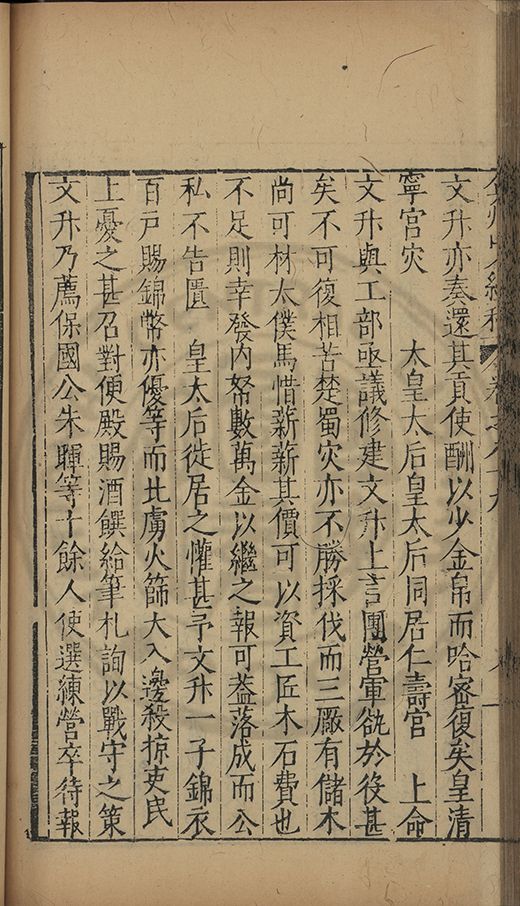 文升亦奏還其貢使酬以少金帛而哈密復矣皇清
寧宮灾　太皇太后皇太后同居仁壽宮　上命
文升與工部亟議修建文升上言團營軍疲於役甚
矣不可復相苦楚蜀灾亦不勝採伐而三厰有儲木
尚可材太僕馬惜薪薪其價可以資工匠木石費也
不足則幸發内帑數萬金以繼之報可葢落成而公
私不告匱　皇太后徙居之懽甚予文升一子錦衣
百戶賜錦幣亦優等而北虜火篩大入邊殺掠吏民
上憂之甚召對便殿賜酒饌給筆札詢以戰守之策
文升乃薦保國公朱暉等十餘人使選練營卒待報